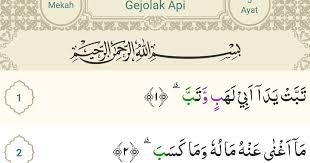 Mekah
Gejolak Api
5
Ayat
بِسْمِ اللّٰهِ الرَّحْمٰنِ الرَّحِيْمِ
1
تَبَّتْ يَدَآ اَبِيْ لَهَبٍ وَّتَبَّۗ ﴿١﴾
2
مَآ اَغْنٰى عَنْهُ مَالُهٗ وَمَا كَسَبَۗ ﴿٢﴾